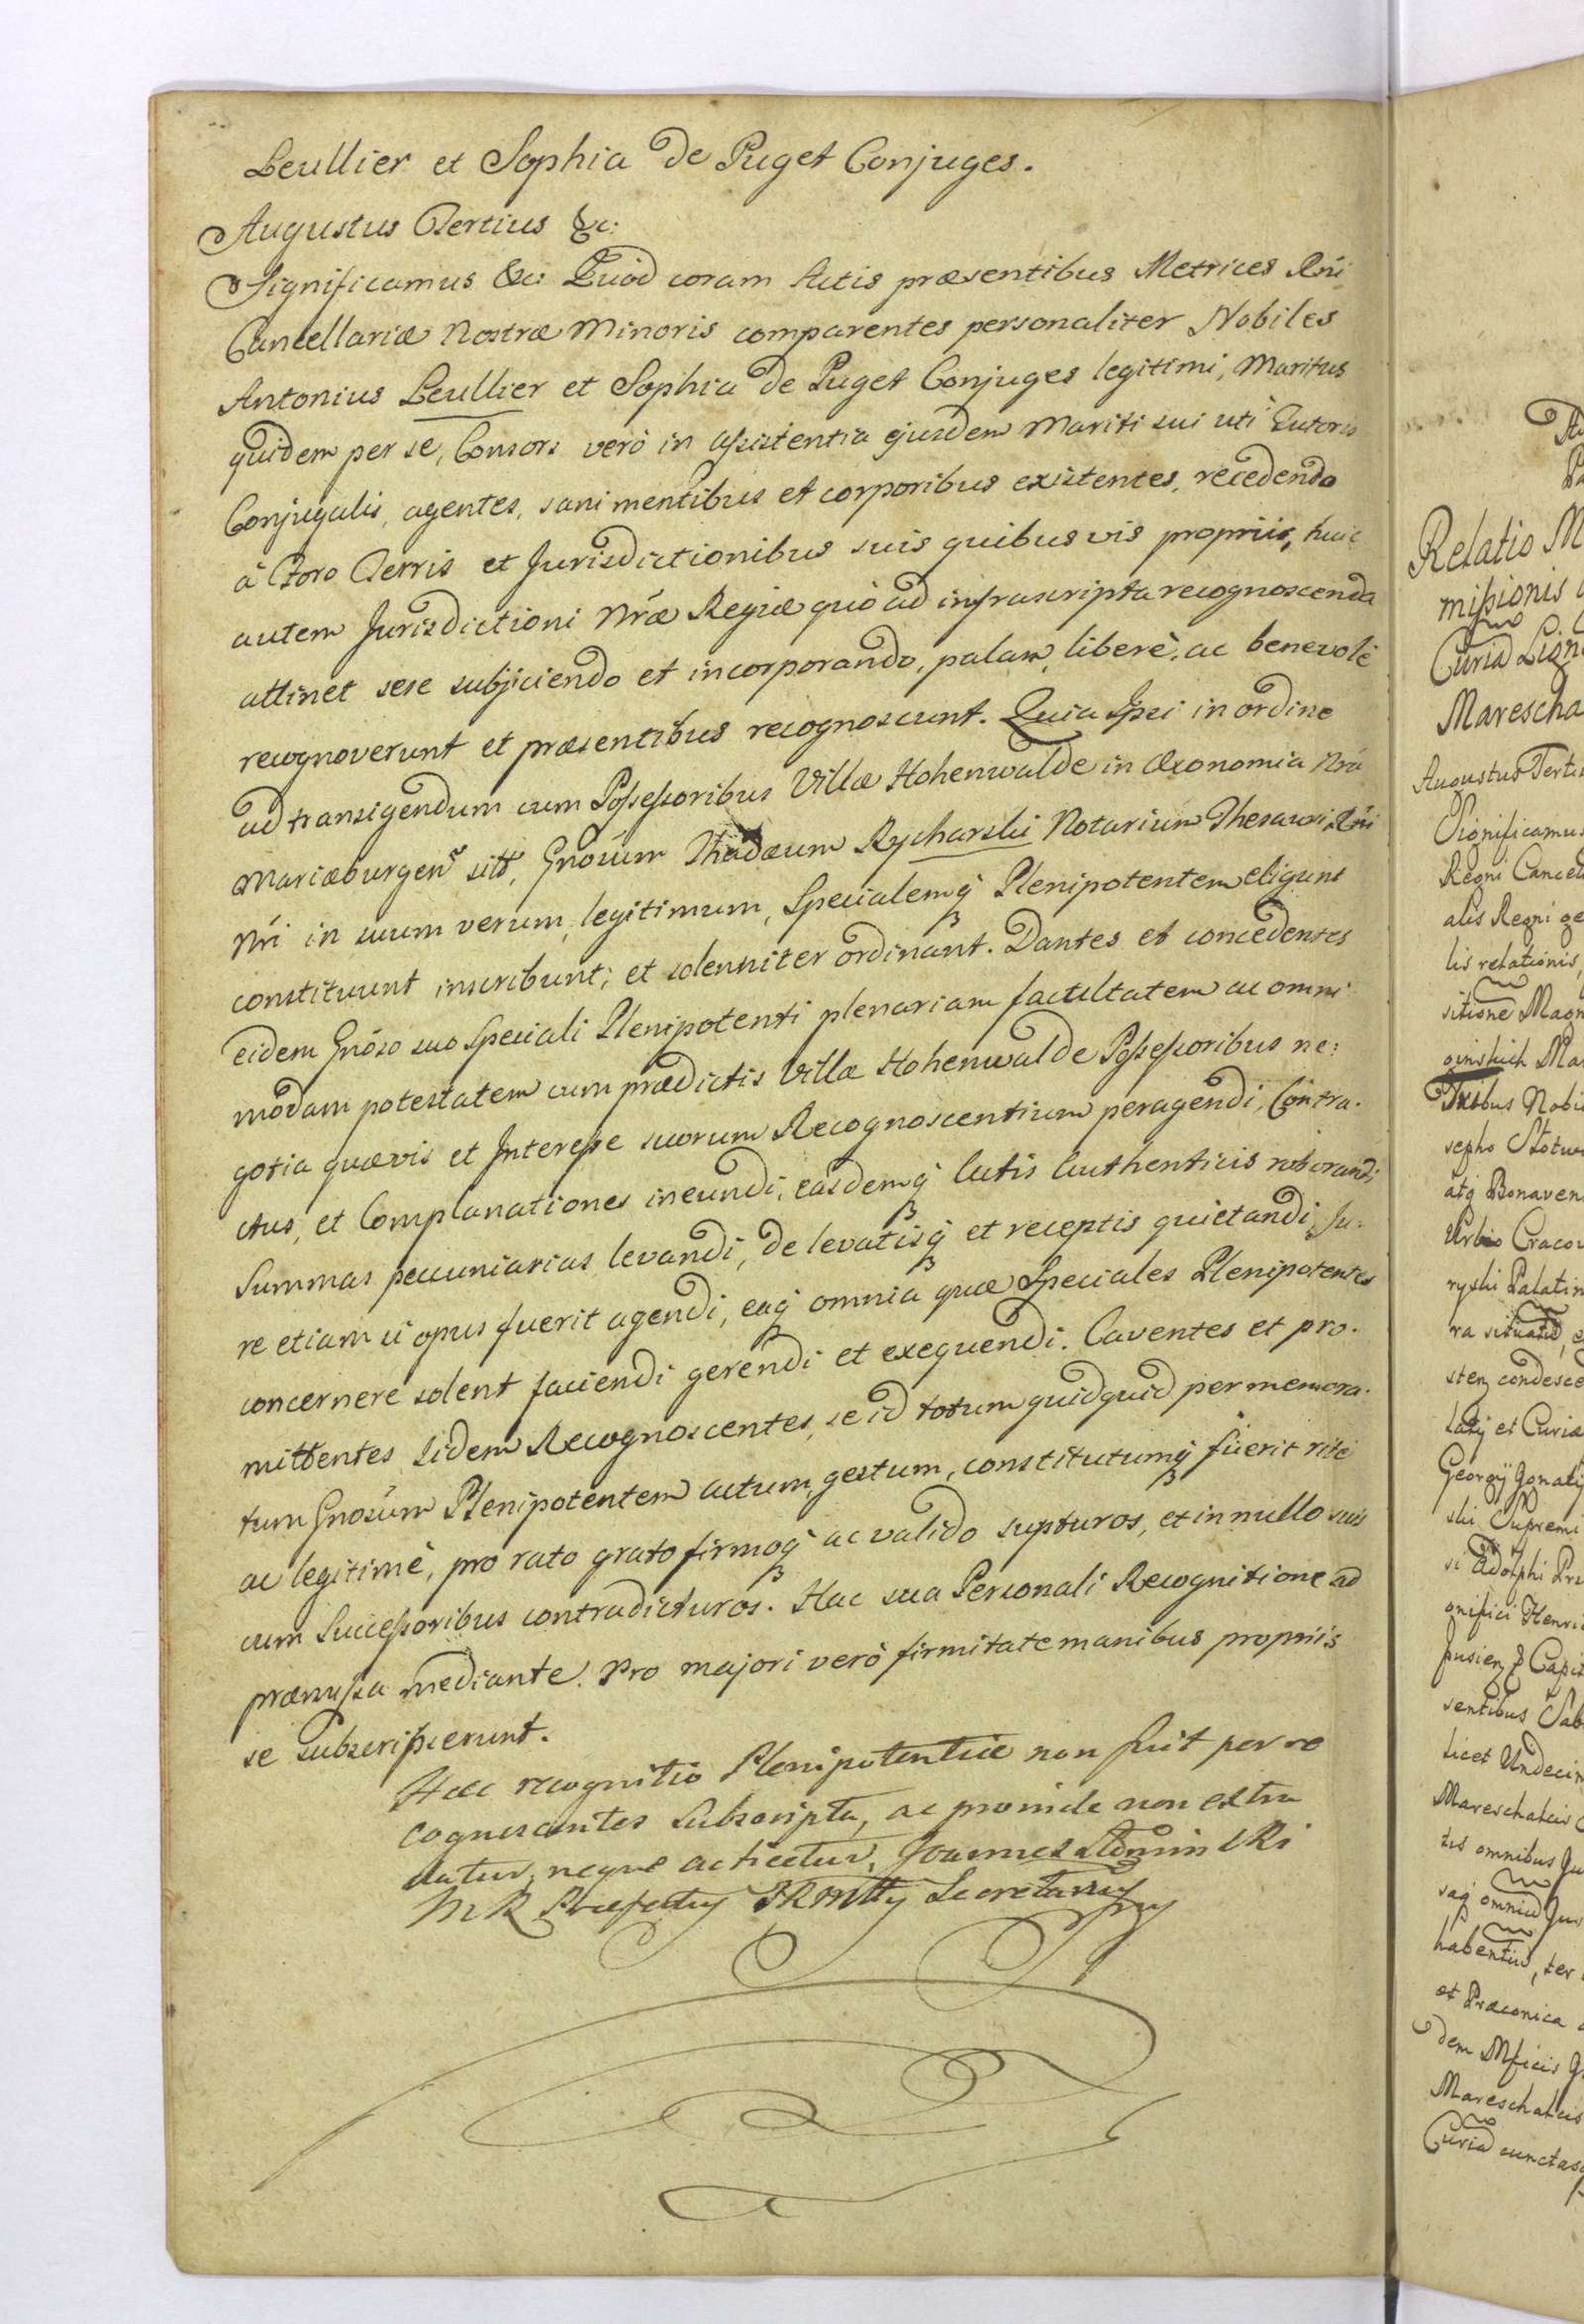 Leullier et Sophia de Puget Conjuges.
Augustus Tertius &c:
Significamus &c: Quod coram Actis præsentibus Metrices Rńi
Cancellariæ Nostræ Minoris comparentes personaliter Nobiles
Antonius Leullier et Sophia de Puget Conjuges legitimi, Maritus
quidem per se, Consors verò in assistentia ejusdem Mariti sui uti Tutoris
Conjugalis, agentes, sani mentibus et corporibus existentes, recedendo
à Foro Terris et Jurisdictionibus suis quibus vis propriis, huic
autem Jurisdictioni Nrǽ Regiæ quò ad infrascripta recognoscenda
attinet sese subjiciendo et incorporando, palam, liberè, ac benevolè
recognoverunt et præsentibus recognoscunt. Quia Ipsi in ordine
ad transigendum cum Possessoribus Villæ Hohenwalde in Œconomia Nrá
Mariæburgen̄ sitt, Gnosúm Thadæum Rycharski Notarium Thesauri Rńi
Nrí in suum verum, legitimum, Specialemq́ Plenipotentem eligunt
constituunt inscribunt; et solenniter ordinant. Dantes et concedentes
eidem Gnóso suo Speciali Plenipotenti plenariam facultatem ac omni
modam potestatem cum prædictis Villæ Hohenwalde Possessoribus ne:
gotia quævis et Interesse suorum Recognoscentium peragendi, Contra.
ctus, et Complanationes ineundi, easdemq́ Actis Authenticis roborandi
Summas pecuniarias levandi, de levatisq́ et receptis quietandi, Ju:
re etiam si opus fuerit agendi, eaq́ omnia quæ Speciales Plenipotentes
concernere solent faciendi gerendi et exequendi. Caventes et pro.
mittentes iidem Recognoscentes, se id totum quidquid per memora.
tum Gnosúm Plenipotentem actum, gestum, constitutumq́ fuerit ritè
ac legitimè, pro rato grato firmoq́ ac valido supturos, et in nullo suis
cum Successoribus contradicturos. Hac sua Personali Recognitione ad
præmissa mediante. Pro majori verò firmitate manibus propriis
se subscripserunt.
Hæc recognitio Plenipotentiæ non fuit per re
cognoscentes Subscripta, ac proinde non extra
datur, neque acticetur, Joannes
MR Præfectus SRMtty Secretarius

Relatio M
missionis
Curia
Marescha
Augustus Terti
Significamus
Regni Cancel
alis Regni ge
lis relationis,
sitione Magn
ginskich Ma
Tribus Nobi
sepho
atq́ Bonaven
Urbio Cracov
ryski Palatin
ra
sten condesce
latij et Curiæ
Georgij Ignatij
ski Supremi
si Adolphi Pru
gnifici Henri
Capit
sentibus Sab
licet Undecim
Mareschalcis
tis omnibus Ju
saq́ omnia Jur
habentiũ, ter
et Præconica
dem Mficis G
Mareschalcis
Curia cunctas